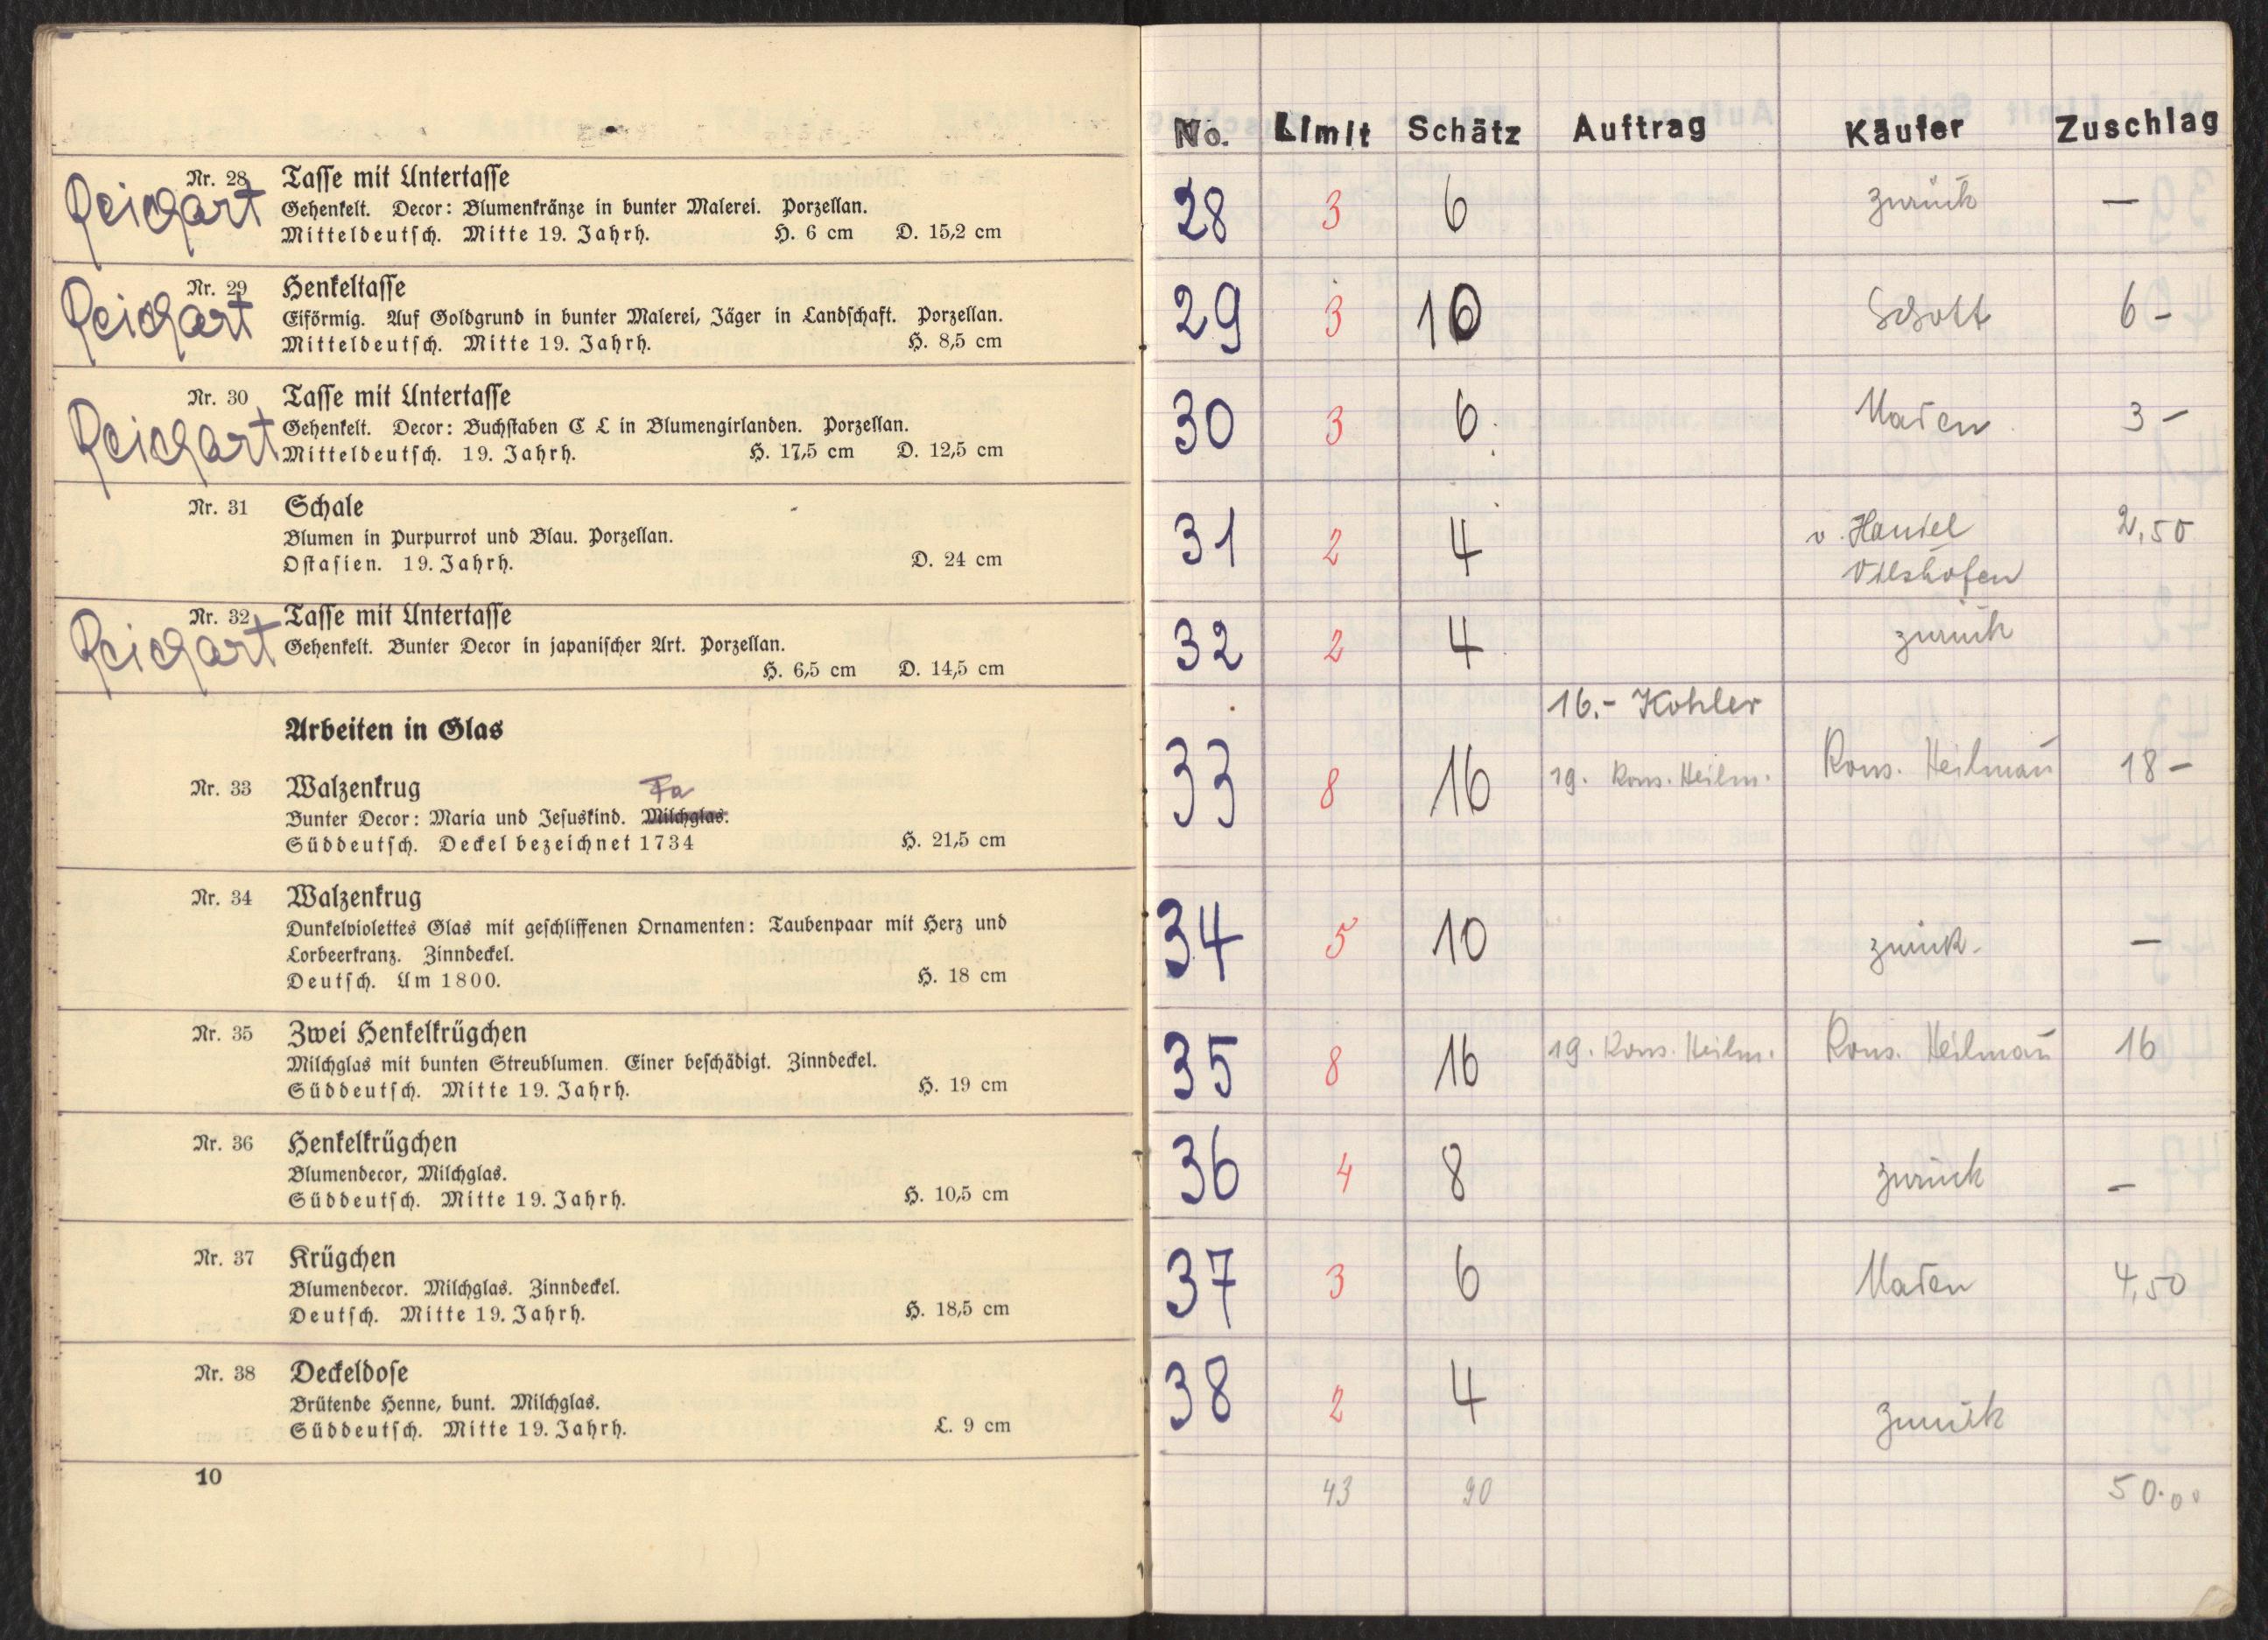 Nr. 28 Tasse mit Untertasse
Reichart
Gehenkelt. Decor: Blumenkränze in bunter Malerei. Porzellan.
Mitteldeutsch. Mitte 19. Jahrh. H. 6 cm D. 15,2 cm
Nr. 29 Henkeltasse
Reichart
Eiförmig. Auf Goldgrund in bunter Malerei, Jäger in Landschaft. Porzellan.
Mitteldeutsch. Mitte 19. Jahrh. H. 8,5 cm
Nr. 30 Tasse mit Untertasse
Reichart
Gehenkelt. Decor: Buchstaben C L in Blumengirlanden. Porzellan.
Mitteldeutsch. 19. Jahrh. H. 17,5 cm D. 12,5 cm
Nr. 31 Schale
Blumen in Purpurrot und Blau. Porzellan.
Ostasien. 19. Jahrh. D. 24 cm
Nr. 32 Tasse mit Untertasse
Reichart
Gehenkelt. Bunter Decor in japanischer Art. Porzellan.
H. 6,5 cm D. 14,5 cm
Arbeiten in Glas
Nr. 33 Walzenkrug
Fa
Bunter Decor: Maria und Jesuskind. Milchglas.
Süddeutsch. Deckel bezeichnet 1734 H. 21,5 cm
Nr. 34 Walzenkrug
Dunkelviolettes Glas mit geschliffenen Ornamenten: Taubenpaar mit Herz und
Lorbeerkranz. Zinndeckel.
Deutsch. Um 1800. H. 18 cm
Nr. 35 Zwei Henkelkrügchen
Milchglas mit bunten Streublumen. Einer beschädigt. Zinndeckel.
Süddeutsch. Mitte 19. Jahrh. H. 19 cm
Nr. 36 Henkelkrügchen
Blumendecor, Milchglas.
Süddeutsch. Mitte 19. Jahrh. H. 10,5 cm
Nr. 37 Krügchen
Blumendecor. Milchglas. Zinndeckel.
Deutsch. Mitte 19. Jahrh. H. 18,5 cm
Nr. 38 Deckeldose
Brütende Henne, bunt. Milchglas.
Süddeutsch. Mitte 19. Jahrh. L. 9 cm
10
No. Limit Schätz Auftrag Käufer Zuschlag
28 3 6 zurück —
29 3 10 Schott 6 –
30 3 6 Maden 3 –
31 2 4 v. Haniel 2,50
Vilshofen
32 2 4 zurück
16.- Kohler
33 8 16 19. Kons. Heilm. Kons. Heilmañ 18 –
34 5 10 zurück. —
35 8 16 19. Kons. Heilm. Kons. Heilmañ 16
36 4 8 zurück –
37 3 6 Maden 4,50
38 2 4 zurück
43 90 50.00